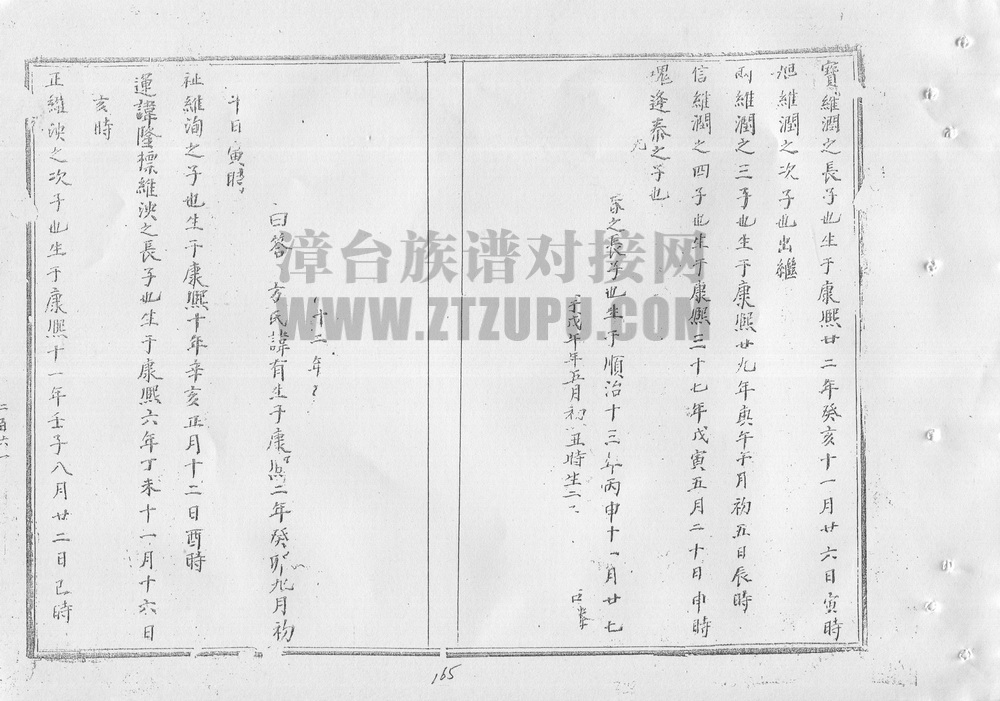 寶維潤之長子也生于康熙廿二年癸亥十一月廿六日寅時
維潤之次子也出繼
維潤之三子也生于康熙廿九年庚午年月初五日辰時
信維潤之四子也生于康熙三十七年戊寅五月二十日申時
塊逢泰之子也
之長子也生于順治十三年丙申十一月廿七
戊年五月初丑時生二
十二年
曰答 方氏諱有生于康熙二年癸卯九月初
十日寅時
祉維洵之子也生于康熙十年辛亥正月十二日酉時
運諱隆標維泱之長子也生于康熙六年丁未十一月十六日
亥時
正維泱之次子也生于康熙十一年壬子八月廿二日巳時
二百六一
165
漳台族谱对接网
WWW.ZTZUPU.COM